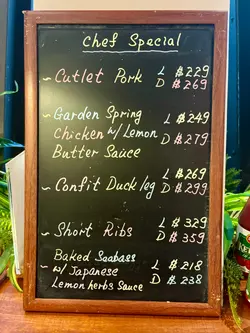 Chef Special
~ Cutlet Pork L $229
D $269
~ Garden Spring L $249
Chicken w/ Lemon D $279
Butter Sauce
~ Confit Duck leg L $269
D $299
~ Short Ribs L $329
D $359
Baked Seabass
~ w/ Japanese L $218
Lemon herbs Sauce D $238